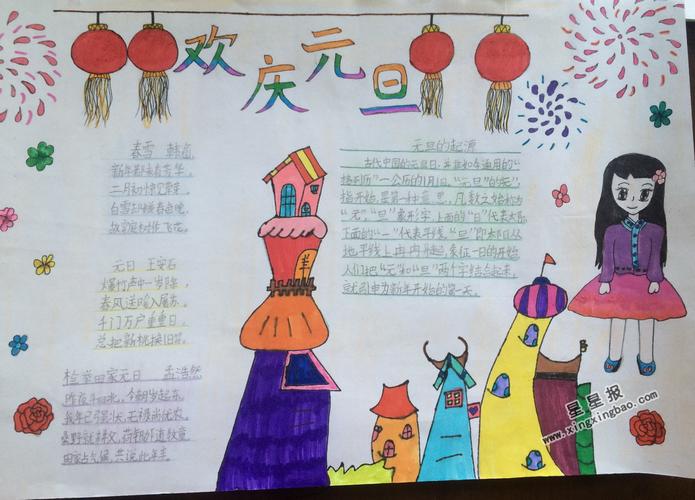 欢庆元旦
春雪 韩愈
新年都未有芳华，
二月初惊见草芽。
白雪却嫌春色晚，
故穿庭树作飞花。
元日 王安石
爆竹声中一岁除，
春风送暖入屠苏。
千门万户重重日，
总把新桃换旧符。
检举田家元日 孟浩然
昨夜斗回北，今朝岁起东。
我年已强壮，无禄尚忧农。
桑野就耕父，荷锄随牧童。
田家占气候，共说此年丰。
元旦的起源
古代中国的元旦日，并非如今通用的“
格列历”—公历的1月1日。“元旦”的“元”，
指开始，是第一的意思，凡数之始称为
“元”，“旦”象形字，上面的“日”代表太阳，
下面的“一”代表平线，“旦”即太阳从
地平线上冉冉升起，象征一日的开始
人们把“元”和“旦”两个字结合起来，
就引申为新年开始的第一天。
星星报
www.xingxingbao.com